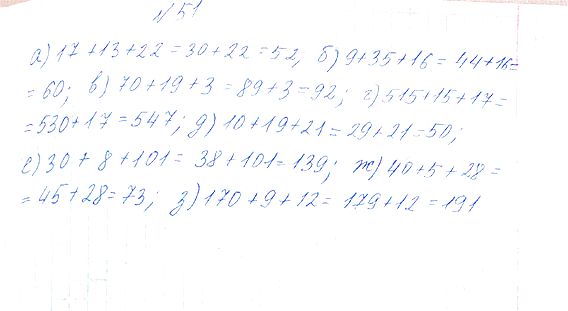 № 51
а) 17 + 13 + 22 = 30 + 22 = 52, б) 9 + 35 + 16 = 44 + 16 =
= 60; в) 70 + 19 + 3 = 89 + 3 = 92; г) 515 + 15 + 17 =
= 530 + 17 = 547; д) 10 + 19 + 21 = 29 + 21 = 50;
е) 30 + 8 + 101 = 38 + 101 = 139; ж) 40 + 5 + 28 =
= 45 + 28 = 73; з) 170 + 9 + 12 = 179 + 12 = 191